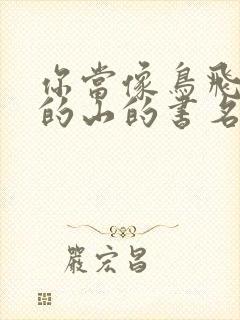 你當像鳥飛
的山的書名
嚴宏昌